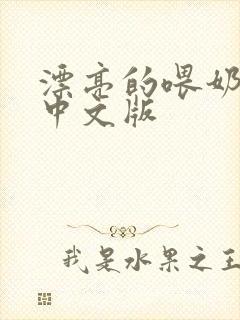 漂亮的喂奶
中文版
我是水果之王